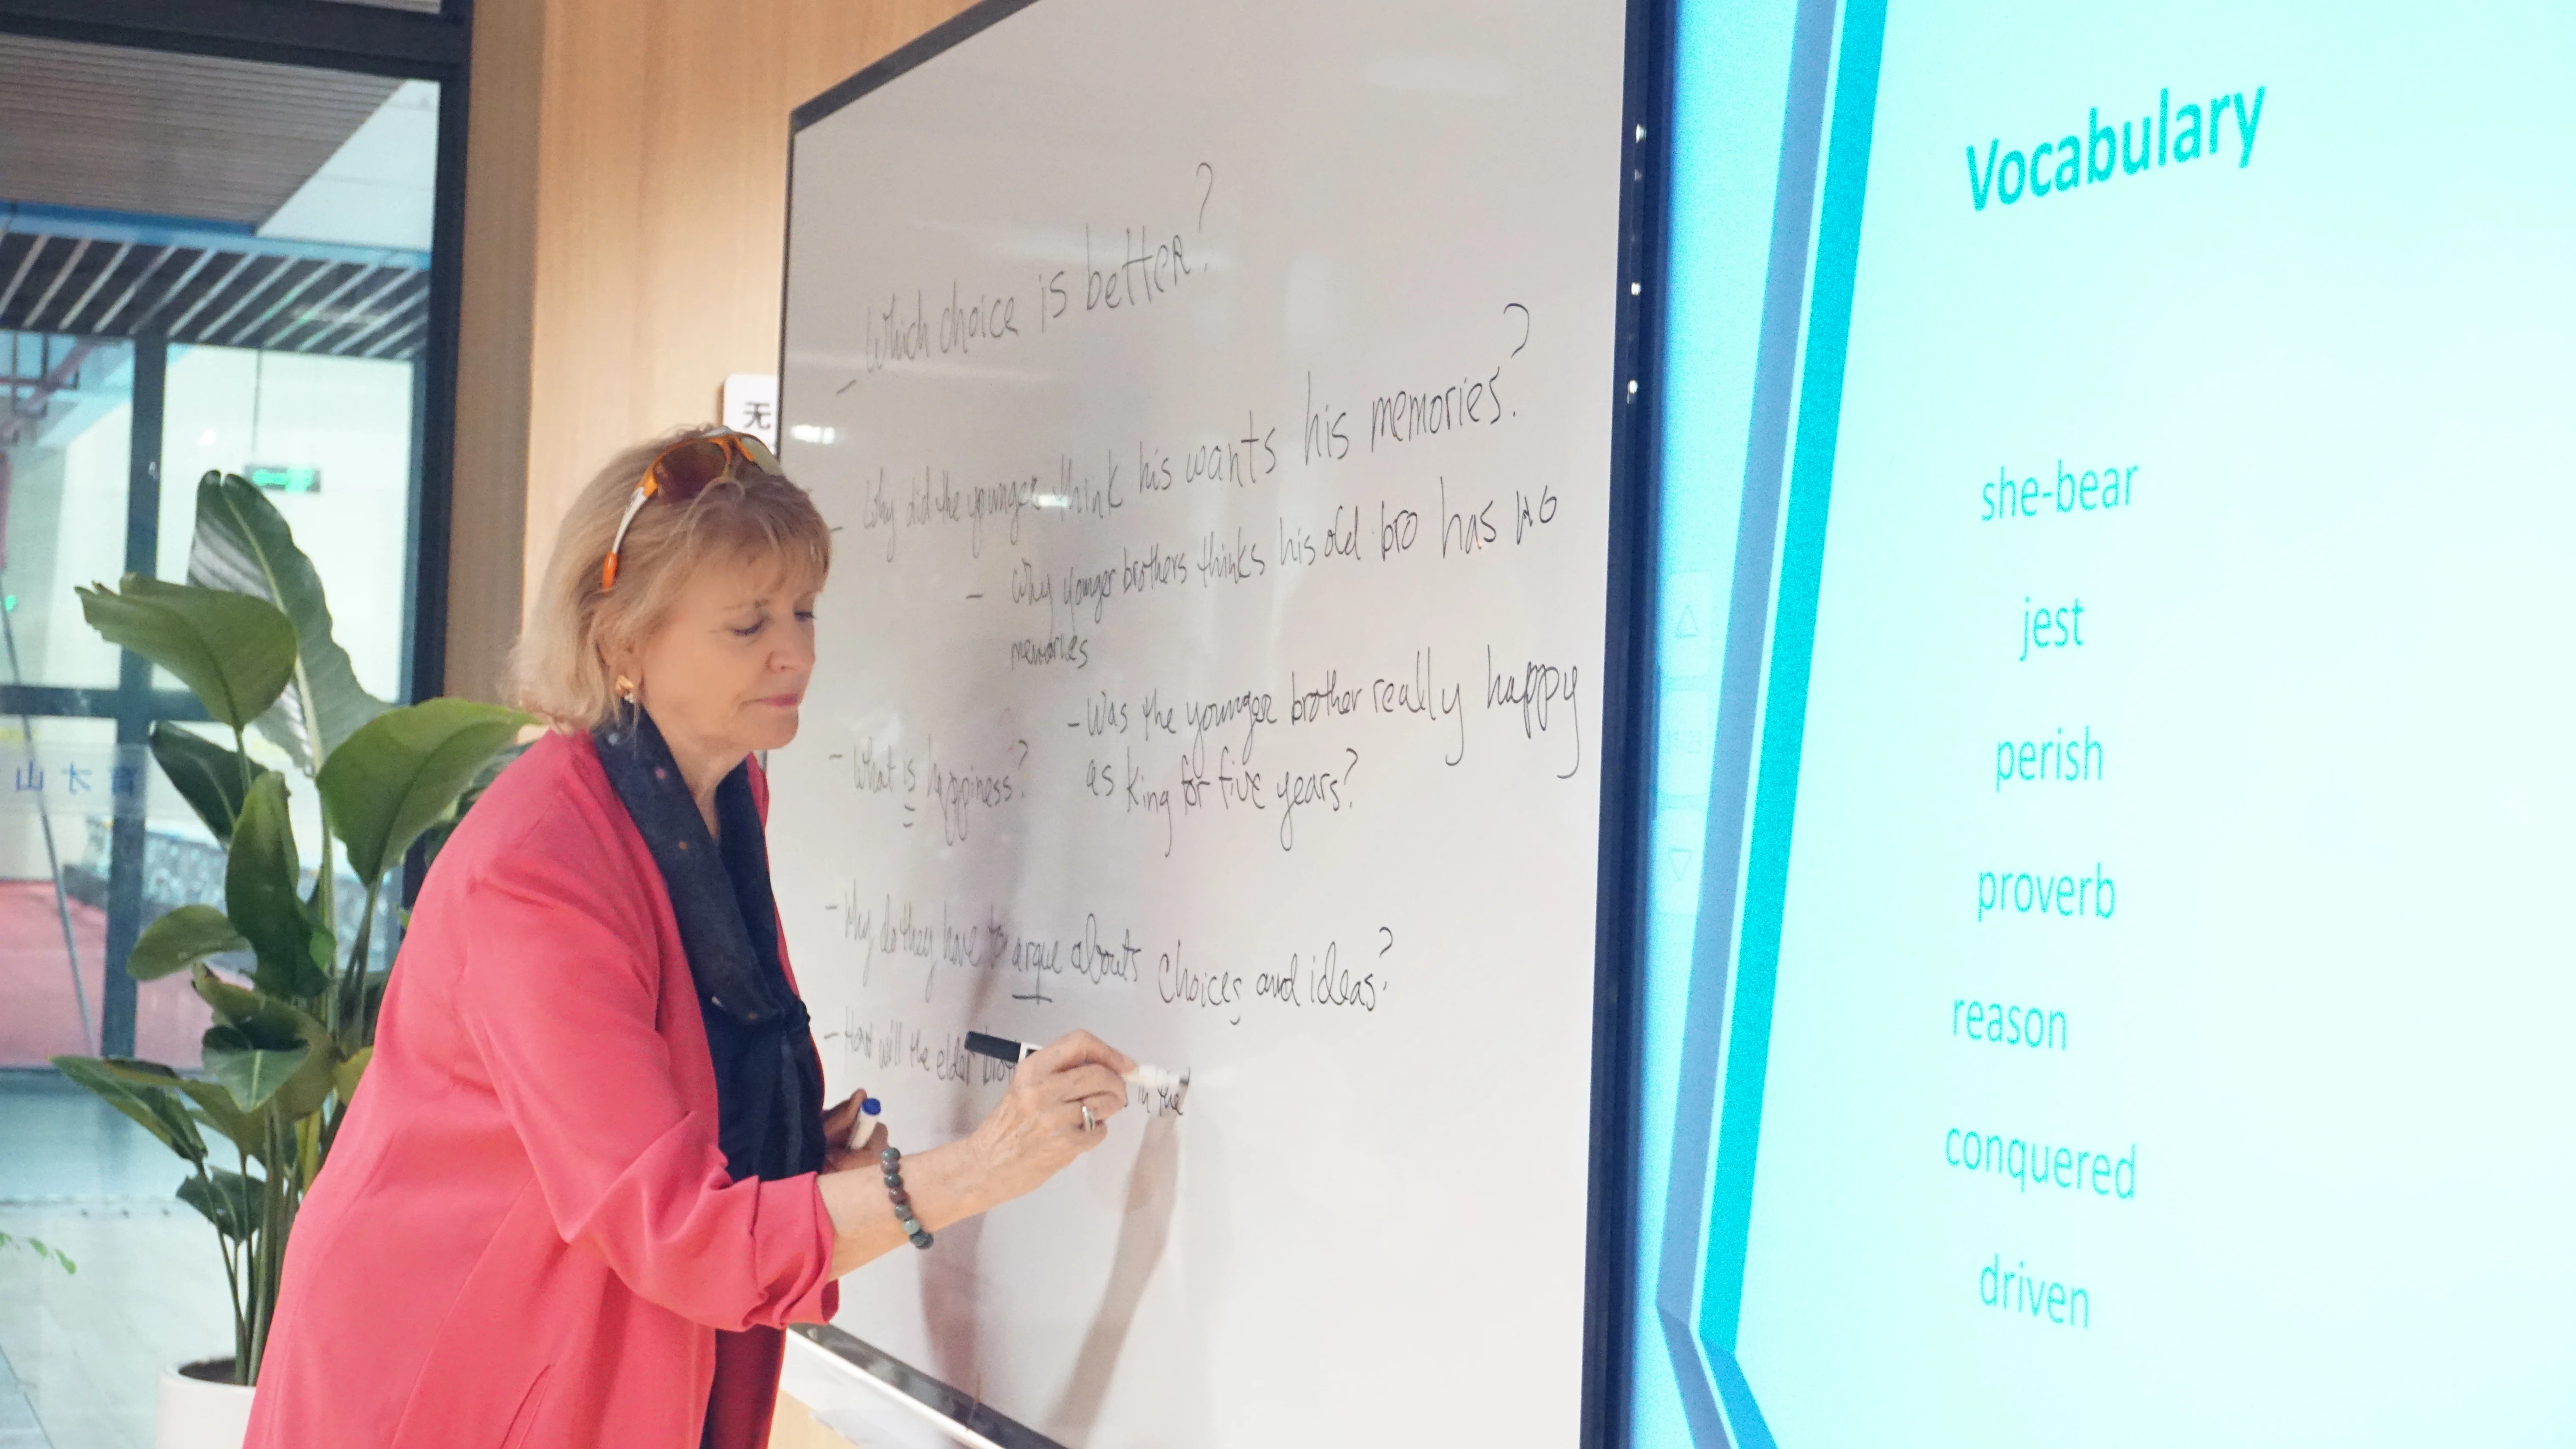 - Which choice is better?
- Why did the younger think his wants his memories?
- Why younger brothers thinks his old bro has no
memories
- Was the younger brother really happy
as king for five years?
- What is happiness?
- Why do they have to argue abouts choices and ideas?
- How will the elder
in the
Vocabulary
she-bear
jest
perish
proverb
reason
conquered
driven
无
育才山